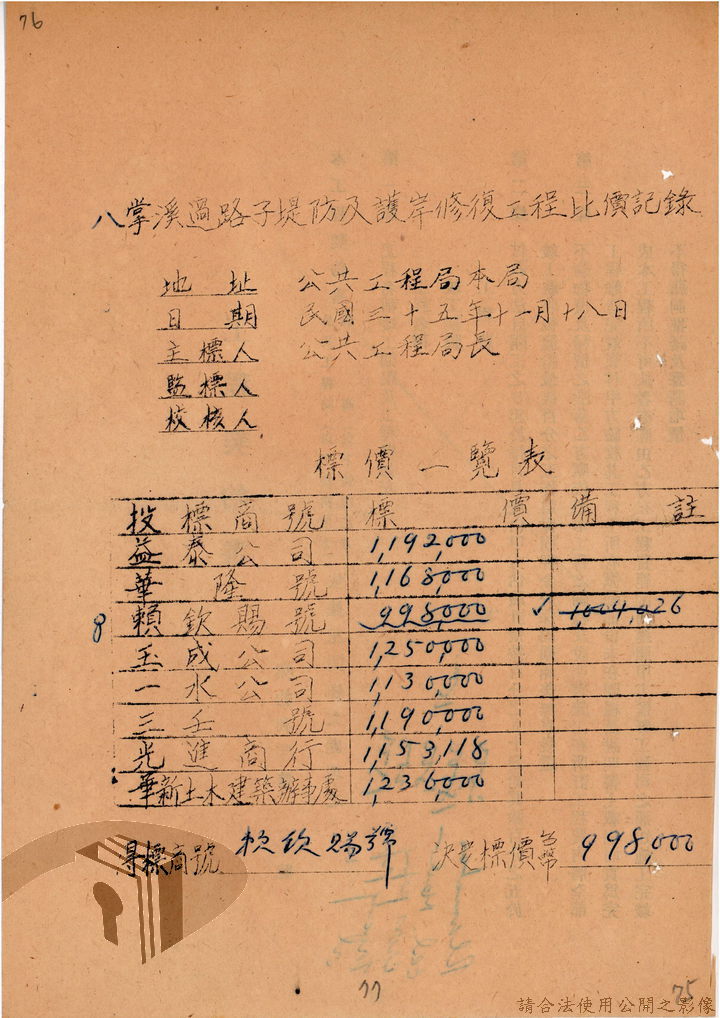 76
八掌溪過路子堤防及護岸修復工程比價記錄
地址 公共工程局本局
日期 民國三十五年十一月十八日
主標人 公共工程局長
監標人
校核人
標價一覽表
投標商號 標價 備註
益泰公司 1,192,000
華隆號 1,168,000
8 賴欽賜號 998,000 ✓ 1,044,026
玉成公司 1,250,000
一水公司 1,130,000
三壬號 1,190,000
光進商行 1,153,118
華新土木建築辦事處 1,236,000
得標商號 賴欽賜號 決定標價台幣 998,000
77
75
請合法使用公開之影像